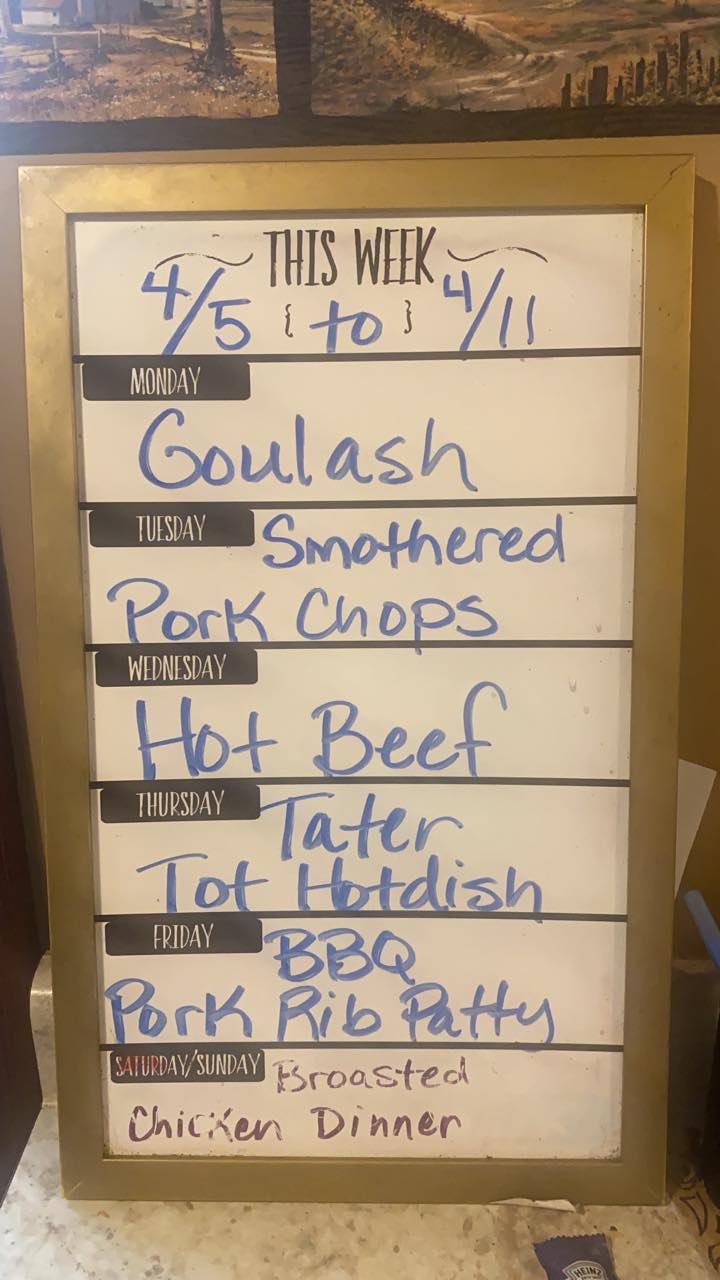 THIS WEEK
4/5 { to } 4/11
MONDAY
Goulash
TUESDAY Smothered
Pork Chops
WEDNESDAY
Hot Beef
THURSDAY Tater
Tot Hotdish
FRIDAY BBQ
Pork Rib Patty
SATURDAY/SUNDAY Broasted
Chicken Dinner
HEINZ